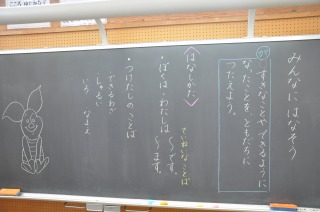 みんなにはなそう
めあて
すきなことや できるように
なったことを ともだちに
つたえよう。
〈はなしかた〉
ていねいなことば
・ぼくは/わたしは 〜です。
〜ます。
・つけたしのことば
できるわざ
しゅるい
いろ なまえ